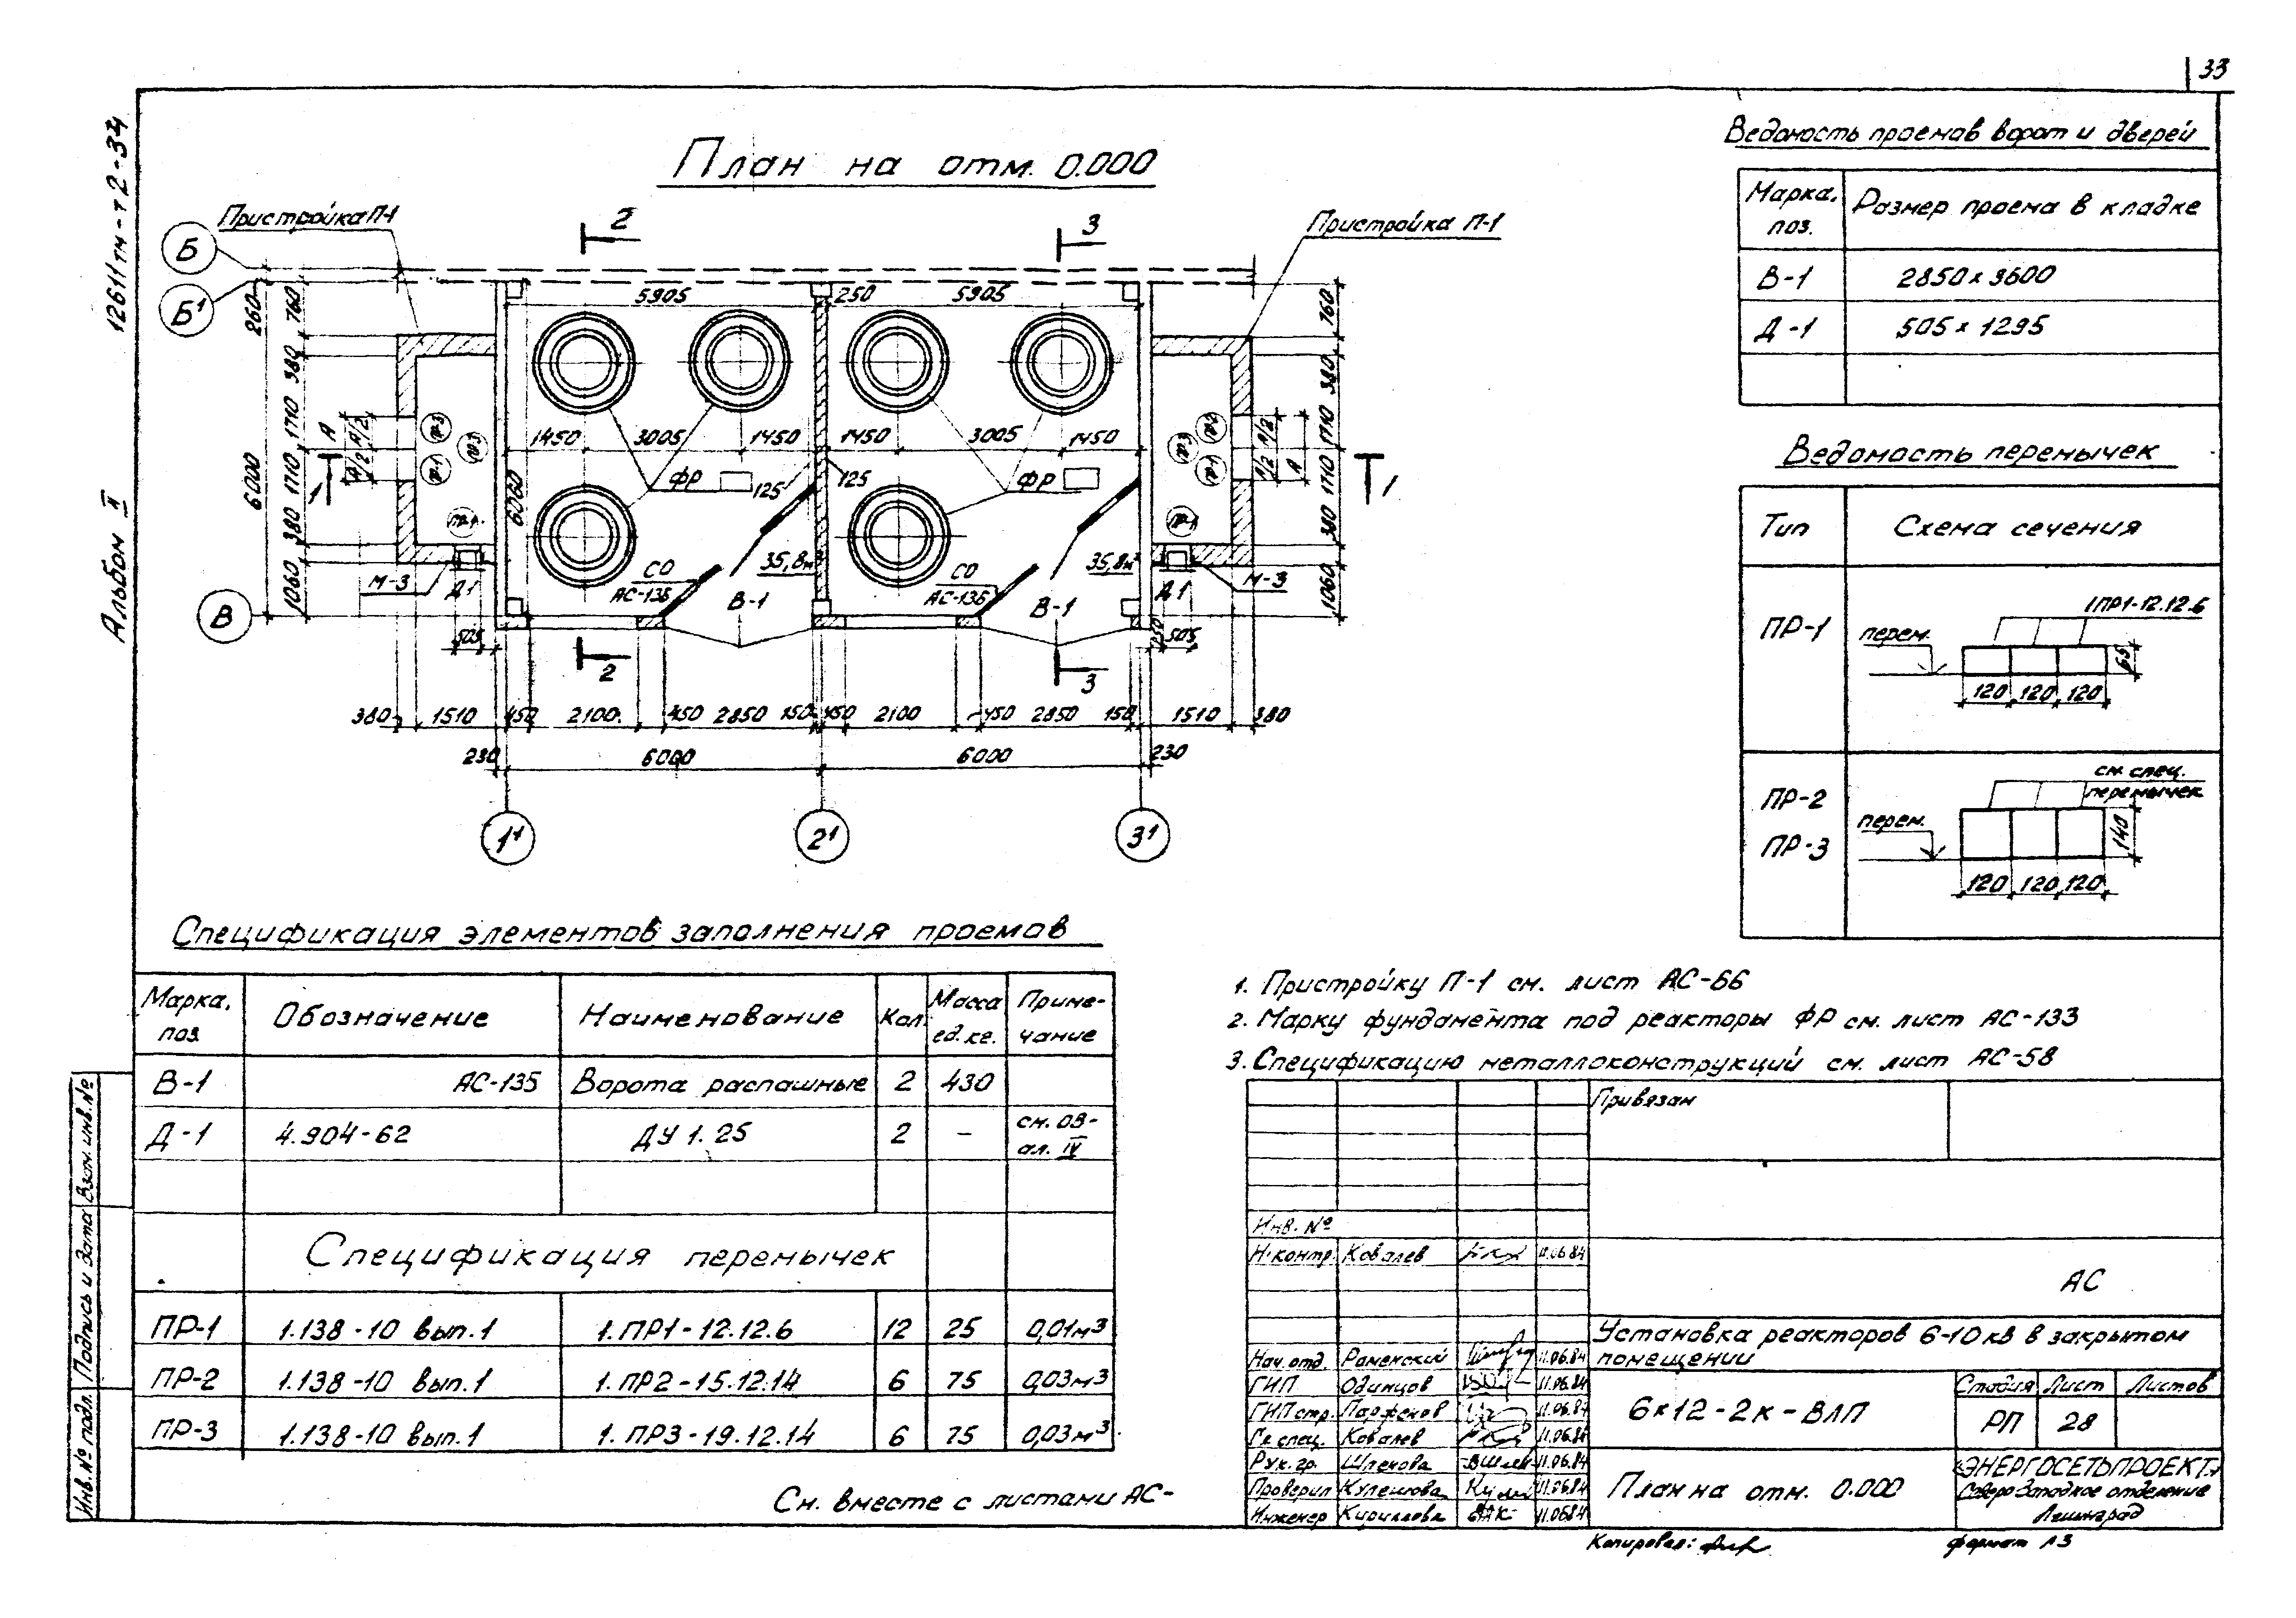 33
12611тм-т2-34
Альбом II
План на отм. 0.000
Пристройка П-1
Пристройка П-1
Б
Б¹
В
2
3
5905
250
5905
260
760
380
1710
1710
380
1060
6000
А
А/2
А/2
1
6060
1450
3005
1450
1450
3005
1450
ФР
125
125
ФР
ПР-3
ПР-1
СО
АС-135
35,8м²
В-1
СО
АС-135
35,8м²
В-1
М-3
Д1
505
М-3
Д1
250
505
760
380
1710
1710
380
1060
А/2
А/2
А
1
2
3
380
1510
450
2100
450
2850
150
450
2100
450
2850
150
1510
380
230
6000
6000
230
1¹
2¹
3¹
Ведомость проемов ворот и дверей
Марка, поз.
Размер проема в кладке
В-1
2850х3600
Д-1
505х1295
Ведомость перемычек
Тип
Схема сечения
ПР-1
перем.
1ПР1-12.12.6
65
120 120 120
ПР-2
ПР-3
перем.
см. спец.
перемычек
140
120 120 120
Спецификация элементов заполнения проемов
Марка, поз.
Обозначение
Наименование
Кол.
Масса ед. кг.
Приме-чание
В-1 АС-135 Ворота распашные 2 430
Д-1 4.904-62 ДУ 1.25 2 - см. ОВ-ал. IV
Спецификация перемычек
ПР-1 1.138-10 вып.1 1.ПР1-12.12.6 12 25 0,01м³
ПР-2 1.138-10 вып.1 1.ПР2-15.12.14 6 75 0,03м³
ПР-3 1.138-10 вып.1 1.ПР3-19.12.14 6 75 0,03м³
См. вместе с листами АС-
1. Пристройку П-1 см. лист АС-66
2. Марку фундамента под реакторы ФР см. лист АС-133
3. Спецификацию металлоконструкций см. лист АС-58
Привязан
Инв. №
Н.контр. Ковалев 11.06.84
АС
Установка реакторов 6-10кв в закрытом
помещении
Нач. отд. Раменский 11.06.84
ГИП Одинцов 11.06.84
ГИП стр. Парфенов 11.06.84
Гл. спец. Ковалев 11.06.84
Рук. гр. Шленова 11.06.84
Проверил Кулешова 11.06.84
Инженер Кириллова 11.06.84
6х12-2к-ВЛП
Стадия Лист Листов
РП 28
План на отм. 0.000
«ЭНЕРГОСЕТЬПРОЕКТ»
Северо-Западное отделение
Ленинград
Копировал:
формат А3
Взам. инв. №
Подпись и дата
Инв. № подл.